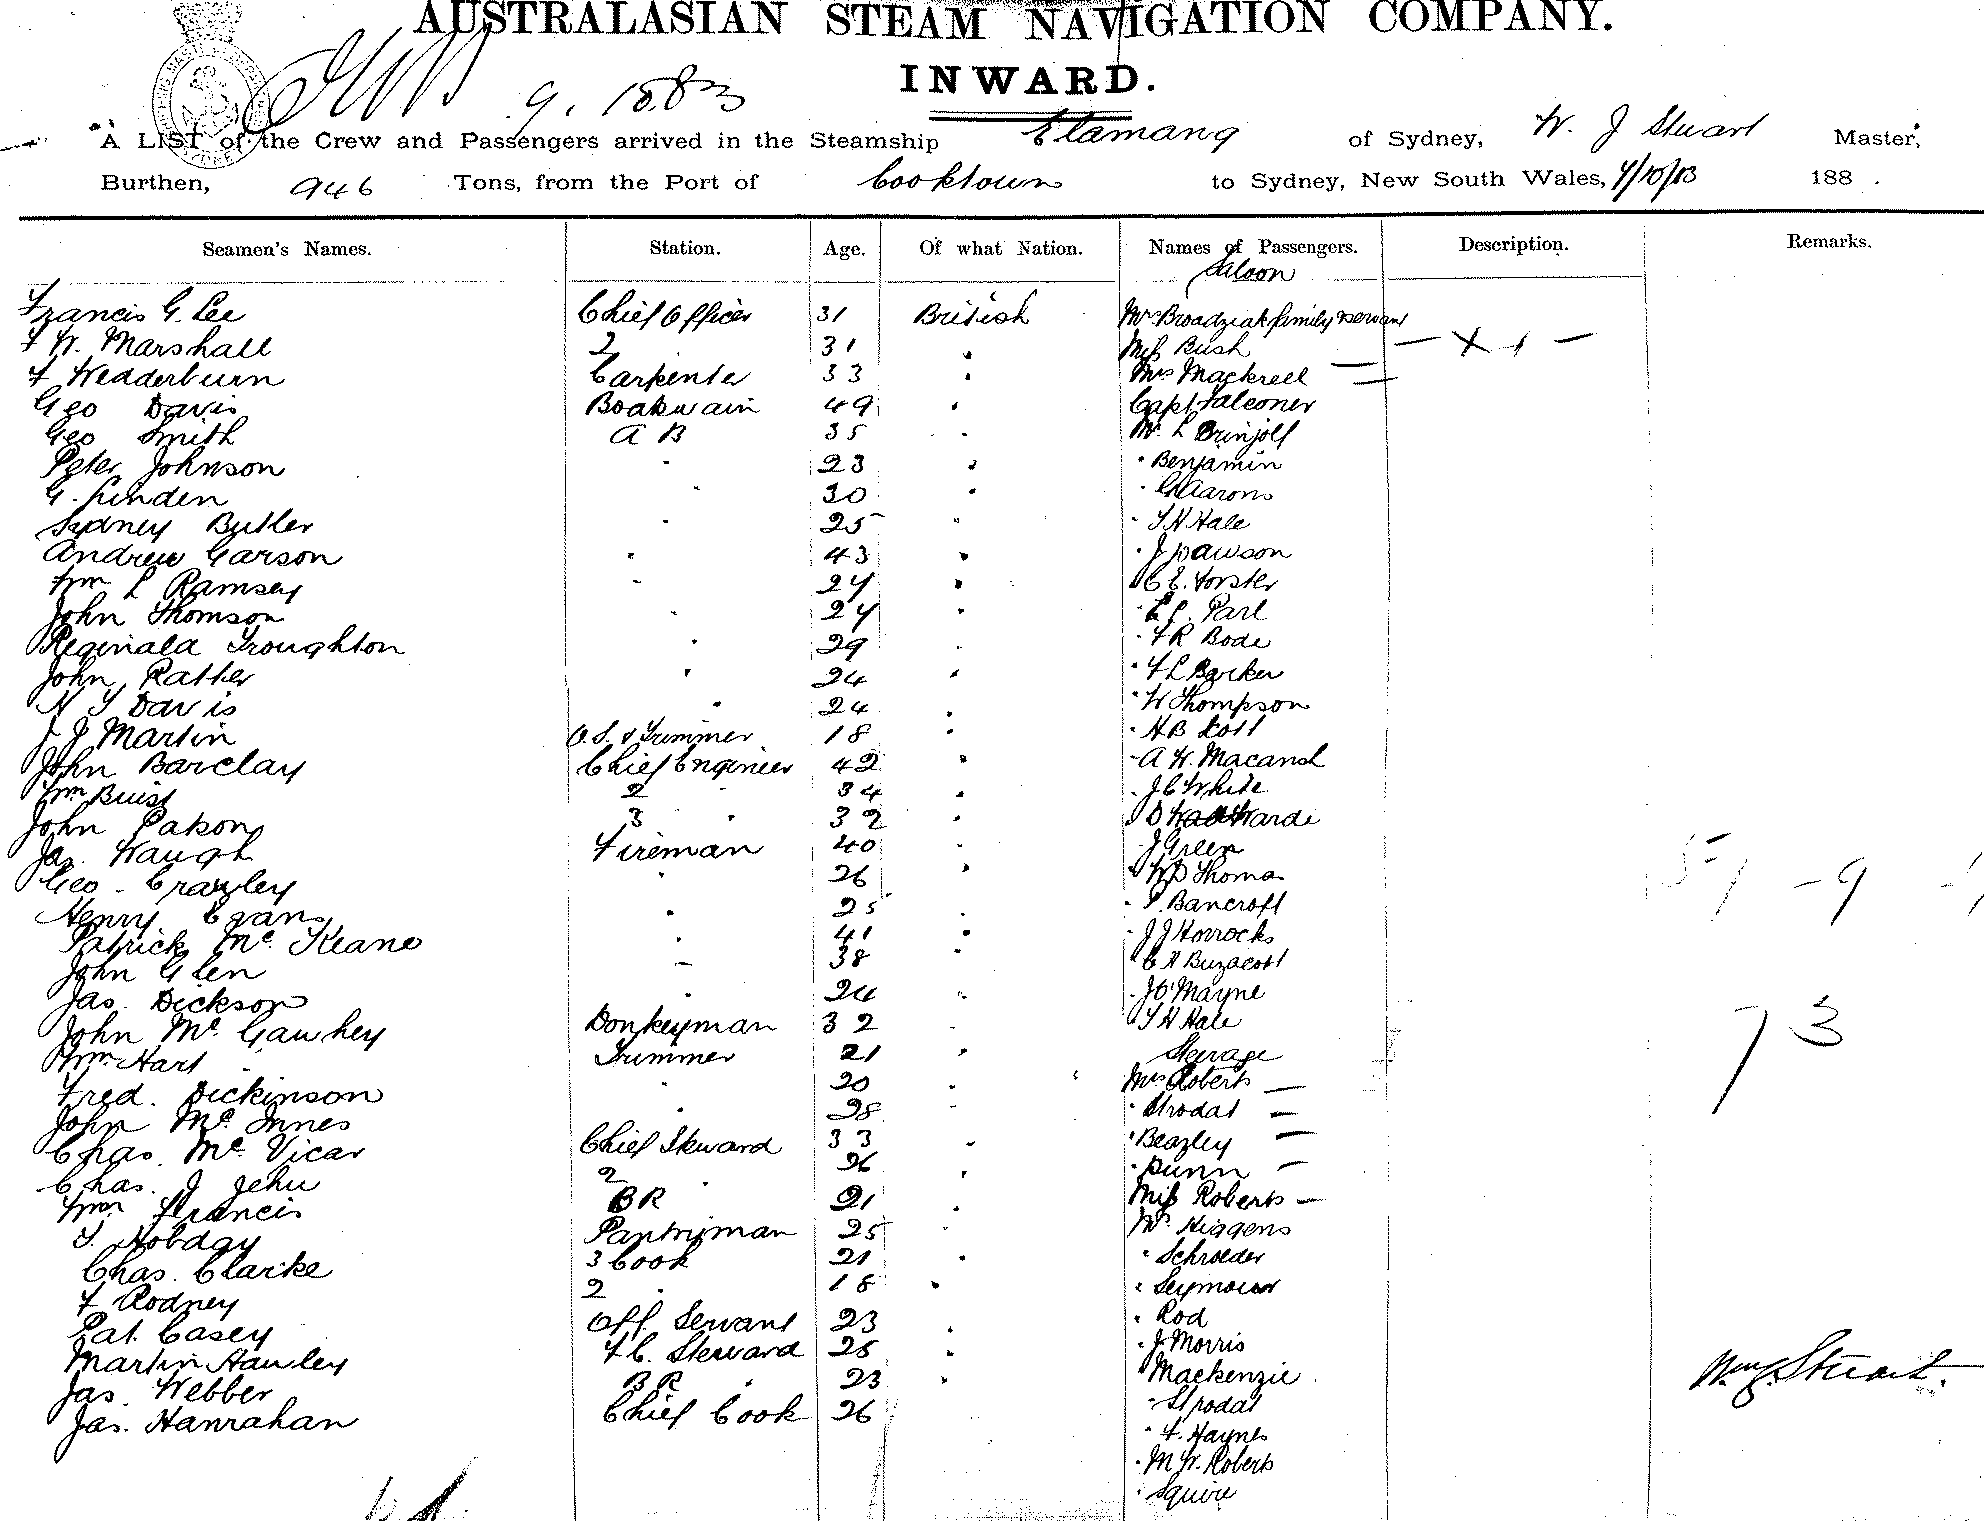 AUSTRALASIAN STEAM NAVIGATION COMPANY.
INWARD.
9. 1883
A LIST of the Crew and Passengers arrived in the Steamship Elamang of Sydney, W. J Stuart Master,
Burthen, 946 Tons, from the Port of Cooktown to Sydney, New South Wales, 4/10/83 188 .
Seamen's Names. Station. Age. Of what Nation. Names of Passengers. Description. Remarks.
Saloon
Francis G. Lee Chief Officer 31 British Mrs Broadziak family & servant
F W. Marshall 2 31 " Miss Bush
F Wedderburn Carpenter 33 " Mrs Mackrell
Geo Davis Boatswain 49 " Capt Falconer
Geo Smith A B 35 " Mr L Brinjolf
Peter Johnson " 23 " " Benjamin
G. Linden " 30 " " G Aarons
Sydney Butler " 25 " " S H Hale
Andrew Garson " 43 " " J Dawson
Wm L Ramsey " 24 " " C E. Forster
John Thomson " 24 " " Parl
Reginald Troughton " 29 " " F R Bode
John Ratter " 24 " " F L Barker
H J Davis " 24 " " W Thompson
J J Martin O.S. & Trimmer 18 " " H B Lott
John Barclay Chief Engineer 42 " " A W. Macansh
Wm Buist 2 " 34 " " J C White
John Paton 3 " 32 " " D
Jas. Waugh Fireman 40 " J Green
Geo. Crawley " 26 " " W D Thomas
Henry Evans " 25 " " Bancroft
Patrick Mc. Keane " 41 " " J J Horrocks
John Glen " 38 " " C H Buzacott
Jas. Dickson " 24 " " J O'Mayne
John Mc Gawhey Donkeyman 32 " " S H Hale
Wm Hart Trimmer 21 " Steerage
Fred. Dickinson " 20 " Mrs Roberts
John Mc Innes " 28 " " Strodat
Chas. Mc Vicar Chief Steward 33 " " Beazley
Chas. J Jehu 2 " 26 " " Dunn
Wm Francis B R 21 " Miss Roberts
T. Hobday Pantryman 25 Mr Higgens
Chas. Clarke 3 Cook 21 " " Schroeder
F Rodney 2 " 18 " " Seymour
Pat. Casey Off. Servant 23 " " Rod
Martin Hawley F C. Steward 25 " " J Morris
Jas. Webber B R " 23 " Mackenzie
Jas. Hanrahan Chief Cook 26 " Strodat
" F. Haynes
" M W. Roberts
" Squire
73
Wm J. Stuart.